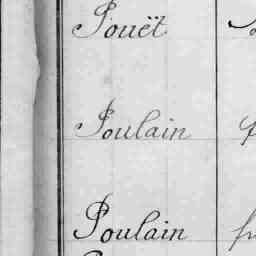 Pouët
Poulain
Poulain